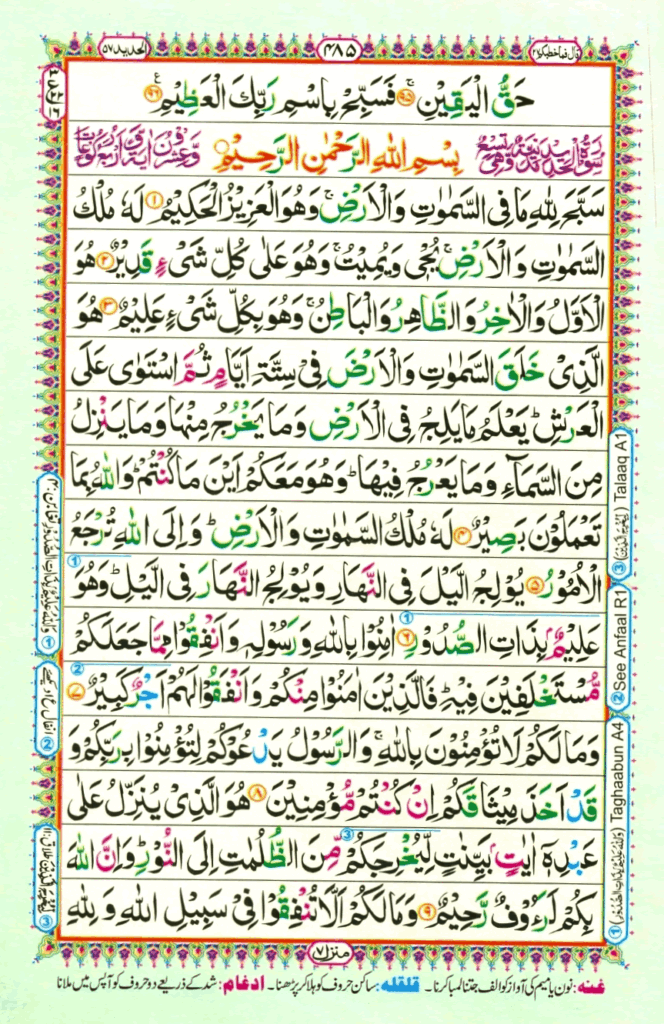 الحديد ٥٧
٤٨٥
قال فما خطبكم ٢٧
حَقُّ الۡيَقِيۡنِ ۚ‏ ﴿۹۵﴾ فَسَبِّحۡ بِاسۡمِ رَبِّكَ الۡعَظِيۡمِ ﴿۹۶﴾
بِسۡمِ اللهِ الرَّحۡمٰنِ الرَّحِيۡمِ
سَبَّحَ لِلّٰهِ مَا فِى السَّمٰوٰتِ وَالۡاَرۡضِ‌ۚ وَهُوَ الۡعَزِيۡزُ الۡحَكِيۡمُ ﴿۱﴾ لَهٗ مُلۡكُ
السَّمٰوٰتِ وَالۡاَرۡضِ‌ۚ يُحۡىٖ وَيُمِيۡتُ‌ۚ وَهُوَ عَلٰى كُلِّ شَىۡءٍ قَدِيۡرٌ ﴿۲﴾ هُوَ
الۡاَوَّلُ وَالۡاٰخِرُ وَالظَّاهِرُ وَالۡبَاطِنُ‌ۚ وَهُوَ بِكُلِّ شَىۡءٍ عَلِيۡمٌ ﴿۳﴾ هُوَ
الَّذِىۡ خَلَقَ السَّمٰوٰتِ وَالۡاَرۡضَ فِىۡ سِتَّةِ اَيَّامٍ ثُمَّ اسۡتَوٰى عَلَى
الۡعَرۡشِ‌ؕ يَعۡلَمُ مَا يَلِجُ فِى الۡاَرۡضِ وَمَا يَخۡرُجُ مِنۡهَا وَمَا يَنۡزِلُ
مِنَ السَّمَآءِ وَمَا يَعۡرُجُ فِيۡهَا‌ؕ وَهُوَ مَعَكُمۡ اَيۡنَ مَا كُنۡتُمۡ‌ؕ وَاللّٰهُ بِمَا
تَعۡمَلُوۡنَ بَصِيۡرٌ ﴿۴﴾ لَهٗ مُلۡكُ السَّمٰوٰتِ وَالۡاَرۡضِ‌ؕ وَاِلَى اللّٰهِ تُرۡجَعُ
الۡاُمُوۡرُ ﴿۵﴾ يُوۡلِجُ الَّيۡلَ فِى النَّهَارِ وَيُوۡلِجُ النَّهَارَ فِى الَّيۡلِ‌ؕ وَهُوَ
عَلِيۡمٌۢ بِذَاتِ الصُّدُوۡرِ ﴿۶﴾ اٰمِنُوۡا بِاللّٰهِ وَرَسُوۡلِهٖ وَاَنۡفِقُوۡا مِمَّا جَعَلَكُمۡ
مُّسۡتَخۡلَفِيۡنَ فِيۡهِ‌ؕ فَالَّذِيۡنَ اٰمَنُوۡا مِنۡكُمۡ وَاَنۡفَقُوۡا لَهُمۡ اَجۡرٌ كَبِيۡرٌ ﴿۷﴾
وَمَا لَكُمۡ لَا تُؤۡمِنُوۡنَ بِاللّٰهِ‌ۚ وَالرَّسُوۡلُ يَدۡعُوۡكُمۡ لِتُؤۡمِنُوۡا بِرَبِّكُمۡ وَ
قَدۡ اَخَذَ مِيۡثَاقَكُمۡ اِنۡ كُنۡتُمۡ مُّؤۡمِنِيۡنَ ﴿۸﴾ هُوَ الَّذِىۡ يُنَزِّلُ عَلٰى
عَبۡدِهٖۤ اٰيٰتٍۭ بَيِّنٰتٍ لِّيُخۡرِجَكُمۡ مِّنَ الظُّلُمٰتِ اِلَى النُّوۡرِ‌ؕ وَاِنَّ اللّٰهَ
بِكُمۡ لَرَءُوۡفٌ رَّحِيۡمٌ ﴿۹﴾ وَمَا لَكُمۡ اَلَّا تُنۡفِقُوۡا فِىۡ سَبِيۡلِ اللّٰهِ وَلِلّٰهِ
③ Talaaq A1
② See Anfaal R1
① Taghaabun A4
منزل ٧
غنہ: نون یا میم کی آواز کو الف جتنا لمبا کرنا۔ قلقلہ: ساکن حروف کو ہلا کر پڑھنا۔ ادغام: شد کے ذریعے دو حروف کو آپس میں ملانا